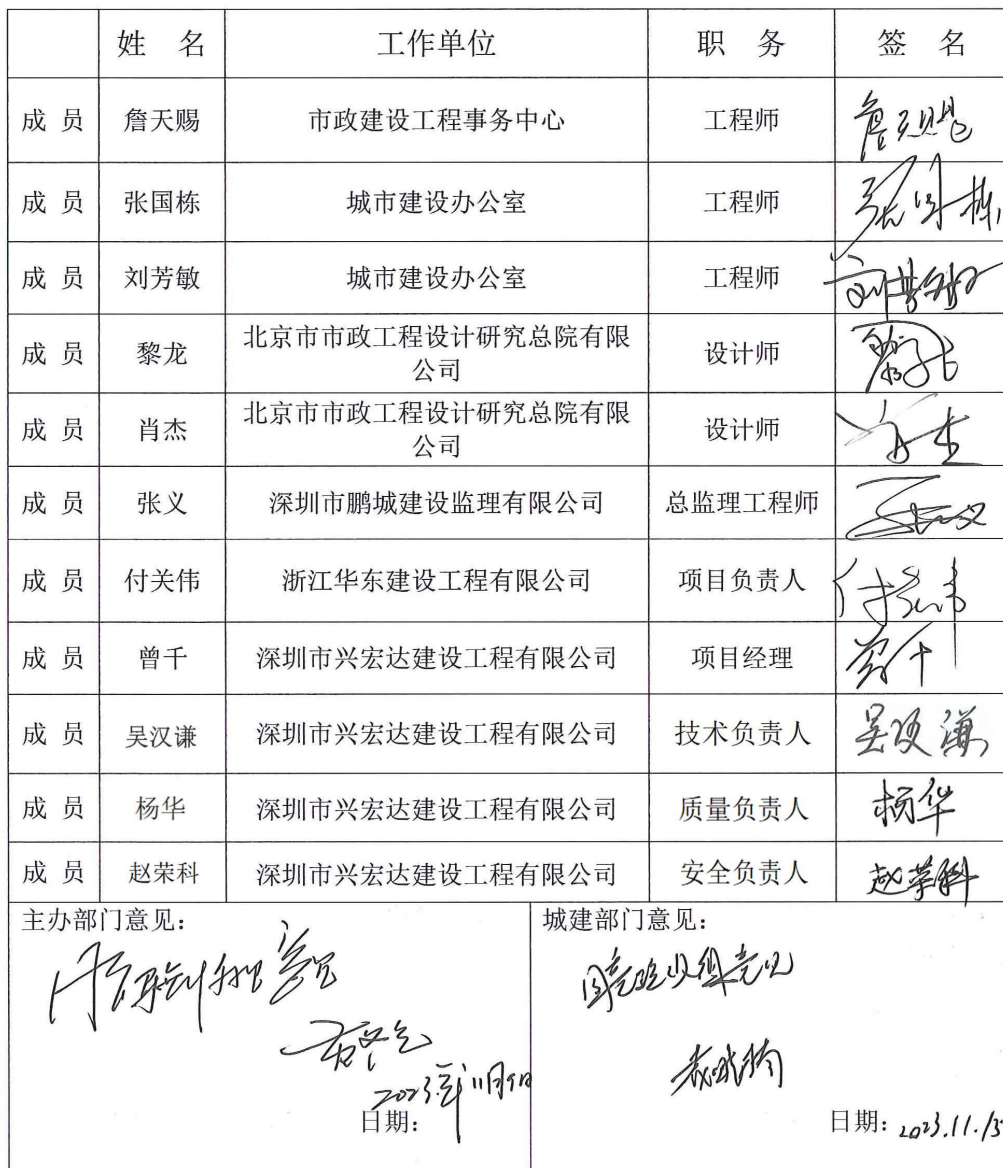 姓 名 工作单位 职 务 签 名
成 员 詹天赐 市政建设工程事务中心 工程师 詹天赐
成 员 张国栋 城市建设办公室 工程师 张国栋
成 员 刘芳敏 城市建设办公室 工程师 刘芳敏
成 员 黎龙 北京市市政工程设计研究总院有限 设计师 黎龙
公司
成 员 肖杰 北京市市政工程设计研究总院有限 设计师 肖杰
公司
成 员 张义 深圳市鹏城建设监理有限公司 总监理工程师 张义
成 员 付关伟 浙江华东建设工程有限公司 项目负责人 付关伟
成 员 曾千 深圳市兴宏达建设工程有限公司 项目经理 曾千
成 员 吴汉谦 深圳市兴宏达建设工程有限公司 技术负责人 吴汉谦
成 员 杨华 深圳市兴宏达建设工程有限公司 质量负责人 杨华
成 员 赵荣科 深圳市兴宏达建设工程有限公司 安全负责人 赵荣科
主办部门意见：
2023年11月9日
日期：
城建部门意见：
同意验收组意见
日期：2023.11.13